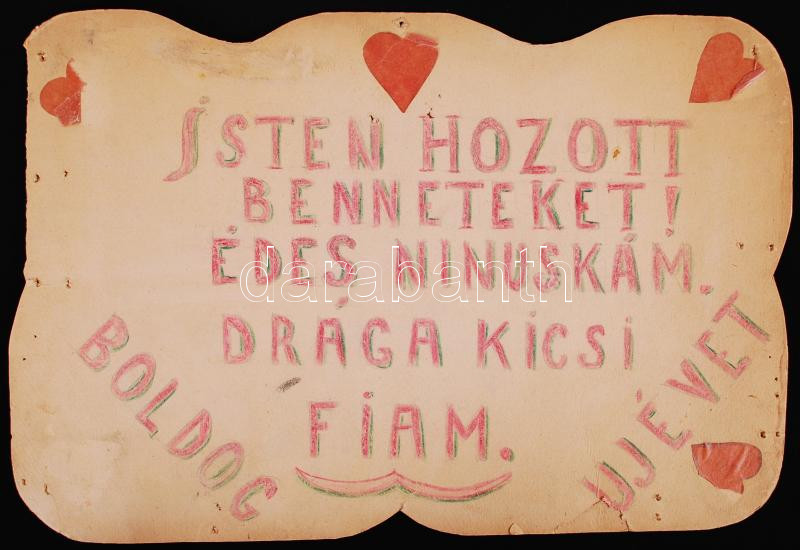 İSTEN HOZOTT
BENNETEKET!
ÉDES NINUSKÁM.
DRÁGA KİCSİ
FİAM.
BOLDOG
UJÉVÉT
darabanth